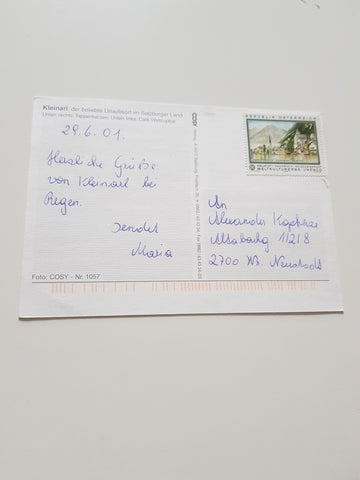 Kleinarl, der beliebte Urlaubsort im Salzburger Land
Unten rechts: Tappenkarsee; Unten links: Café Weltcupbar
29.6.01.
Herzliche Grüße
von Kleinarl bei
Regen.
sendet
Maria
Foto: COSY - Nr. 1057
COSY
REPUBLIK ÖSTERREICH
WELTKULTURERBE UNESCO
An
Alexander
11218
2700 Wr. Neustadt